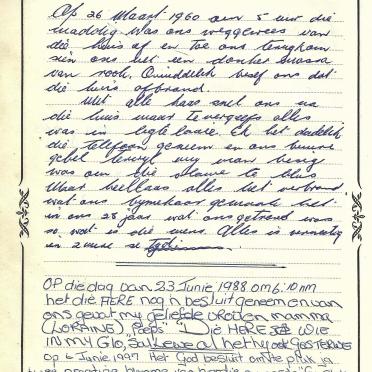 Op 26 Maart 1960 om 5 uur die
middag was ons weggewees van
die huis af en toe ons terugkom
sien ons net een donker
van rook. Onmiddelik besef ons dat
die huis afbrand.
Met alle haas snel ons na
die huis maar tevergeefs alles
was in ligte laaie. Ek het dadelik
die telefoon geneem en ons bure
gebel terwyl my man besig
was om die vlamme te blus
Maar heellaas alles het verbrand
wat ons bymekaar gemaak het
in ons 28 jaar wat ons getroud was
so wat is die mens. Alles is
en
OP die dag van 23 Junie 1988 om 6:10 nm
het die HERE nog 'n besluit geneem en van
ons gevat my geliefde mamma
(LORRAINE) "Poeps" Die HERE sê WIE
IN MY GLO, SAL LEWE al het hy ook GESTERWE
op 6 Junie 1997 Het God besluit om te pluk ja